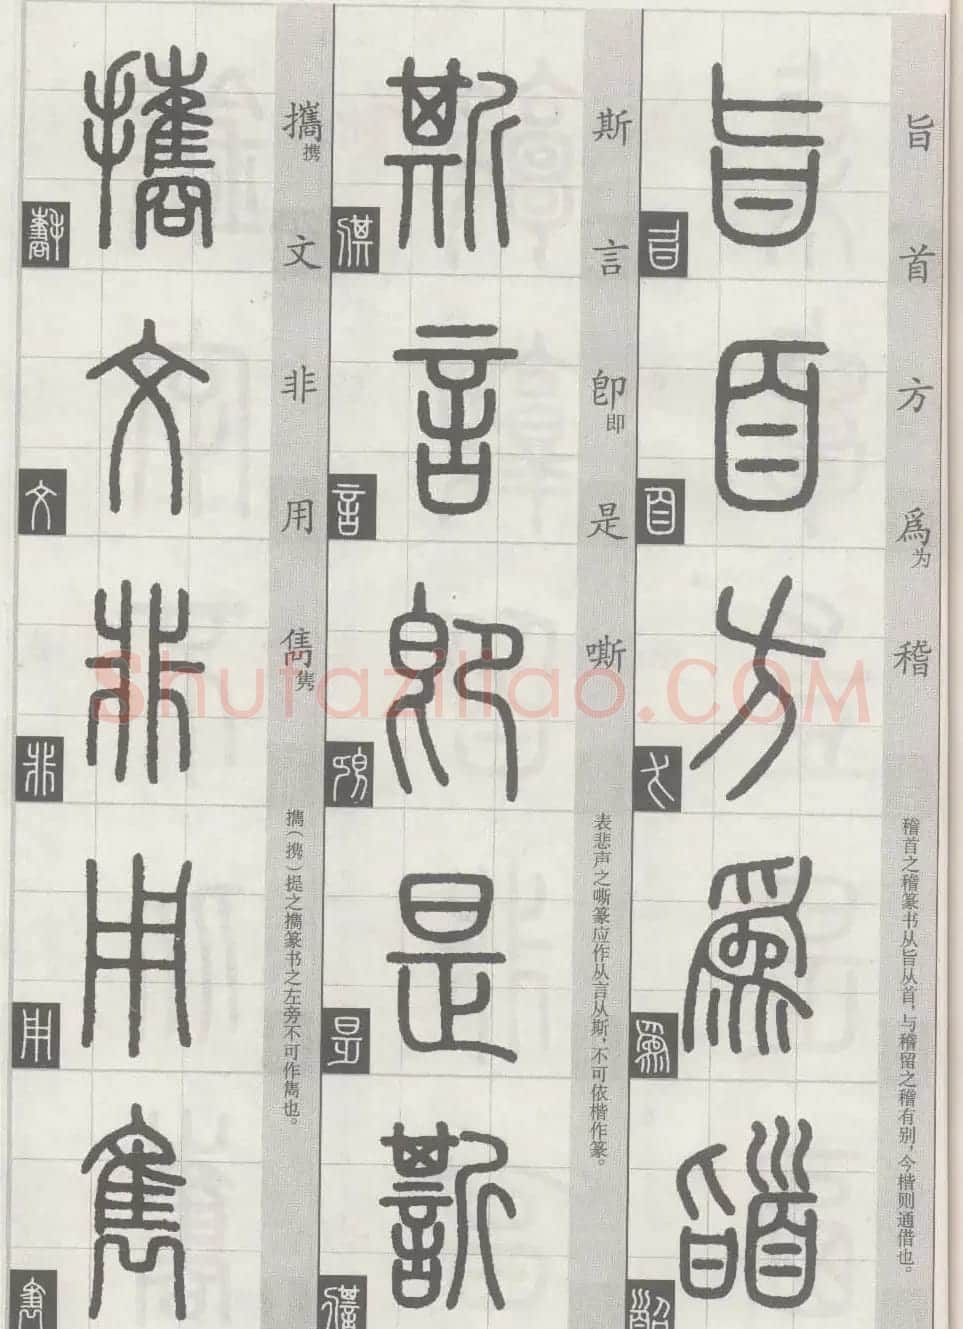 旨首方為稽
为
稽首之稽篆书从旨从首，与稽留之稽有别，今楷则通借也。
旨首方為稽
斯言卽是嘶
即
表悲声之嘶篆应作从言从斯，不可依楷作篆。
斯言卽是嘶
攜文非用雋
携
隽
攜（携）提之攜篆书之左旁不可作雋也。
攜文非用雋
Shufaziliao.COM